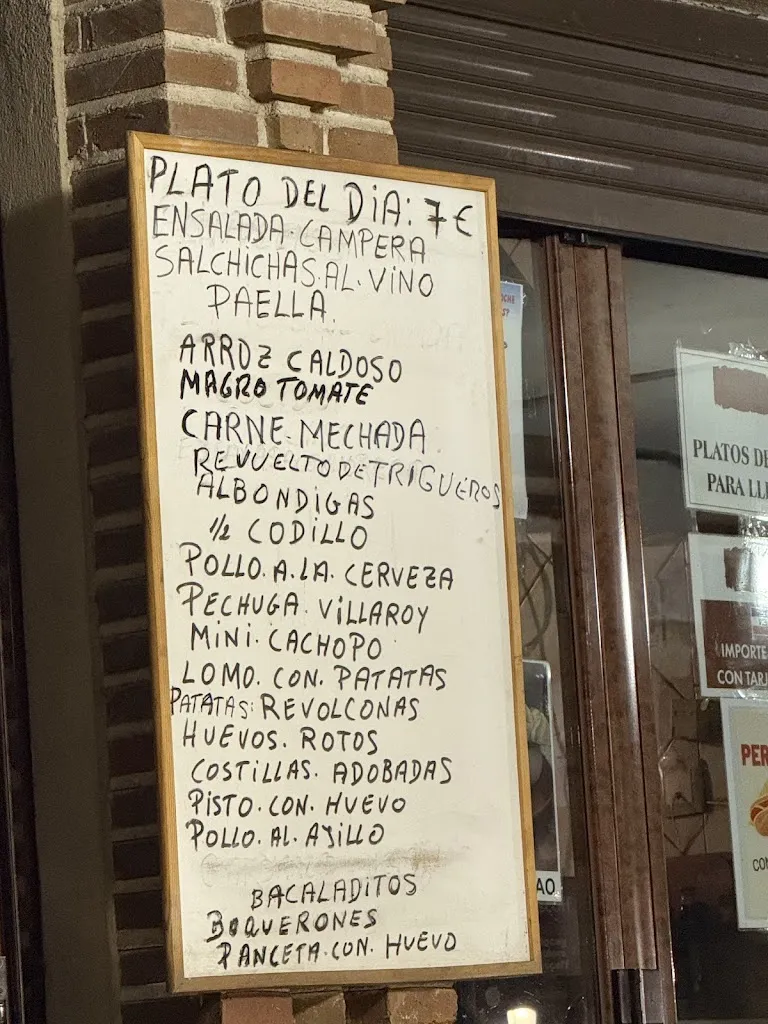 PLATO DEL DiA: 7 €
ENSALADA. CAMPERA
SALCHICHAS. AL. ViNO
PAELLA.
ARROZ CALDOSO
MAGRO TOMATE
CARNE. MECHADA
REVUELTO DE TRIGUEROS
ALBONDIGAS
1/2 CODILLO
POLLO. A. LA. CERVEZA
PECHUGA. ViLLAROY
MiNi. CACHOPO
LOMO. CON. PATATAS
PATATAS: REVOLCONAS
HUEVOS. ROTOS
COSTILLAS. ADOBADAS
PiSTO. CON. HUEVO
POLLO. AL. AJiLLO
BACALADiTOS
BOQUERONES
PANCETA. CON. HUEVO
PLATOS DE
PARA LL
IMPORTE
CON TARJ
PER
CON
AO